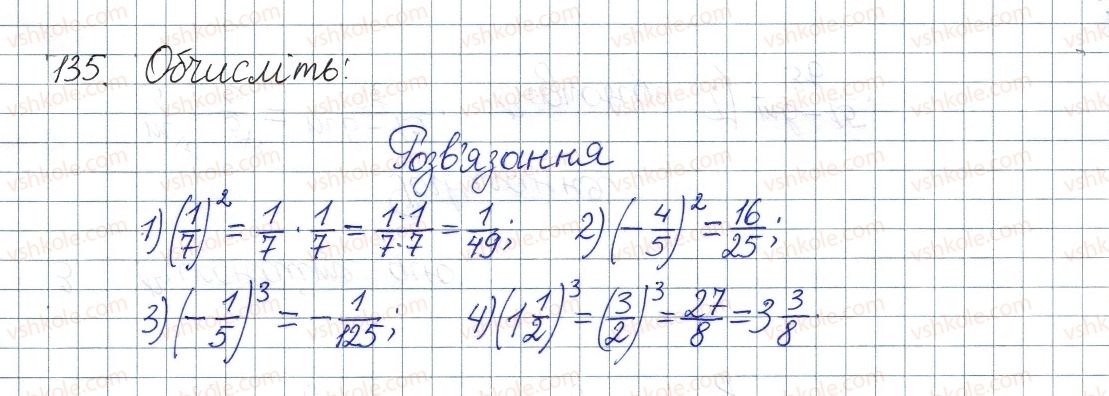 135. Обчисліть:
Розв'язання
1) (1/7)² = 1/7 · 1/7 = 1·1/7·7 = 1/49; 2) (-4/5)² = 16/25;
3) (-1/5)³ = -1/125; 4) (1 1/2)³ = (3/2)³ = 27/8 = 3 3/8.